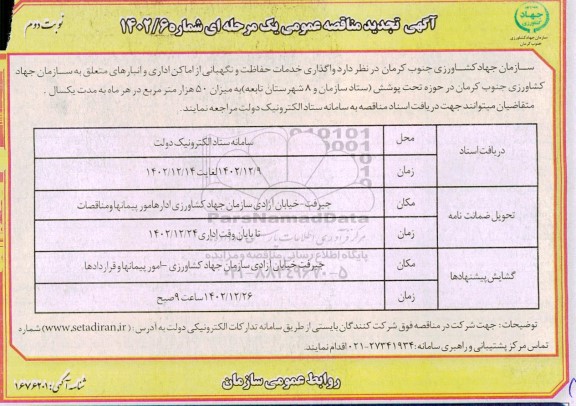 نوبت دوم
آگهی تجدید مناقصه عمومی یک مرحله ای شماره ۱۴۰۲/۶
جهاد
سازمان جهاد کشاورزی
جنوب کرمان
سازمان جهاد کشاورزی جنوب کرمان در نظر دارد واگذاری خدمات حفاظت و نگهبانی از اماکن اداری و انبارهای متعلق به سازمان جهاد
کشاورزی جنوب کرمان در حوزه تحت پوشش (ستاد سازمان و ۸ شهرستان تابعه) به میزان ۵۰ هزار متر مربع در هر ماه به مدت یکسال .
متقاضیان میتوانند جهت دریافت اسناد مناقصه به سامانه ستاد الکترونیک دولت مراجعه نمایند .
دریافت اسناد
محل
سامانه ستاد الکترونیک دولت
زمان
۱۴۰۲/۱۲/۹ لغایت ۱۴۰۲/۱۲/۱۴
تحویل ضمانت نامه
مکان
جیرفت - خیابان آزادی سازمان جهاد کشاورزی اداره امور پیمانها و مناقصات
زمان
تا پایان وقت اداری ۱۴۰۲/۱۲/۲۴
گشایش پیشنهادها
مکان
جیرفت خیابان آزادی سازمان جهاد کشاورزی - امور پیمانها و قراردادها
زمان
۱۴۰۲/۱۲/۲۶ ساعت ۹ صبح
ParsNamadData
پایگاه اطلاع رسانی مناقصه و مزایده
۰۲۱-۸۸۳۴۹۶۷۰-۵
توضیحات : جهت شرکت در مناقصه فوق شرکت کنندگان بایستی از طریق سامانه تدارکات الکترونیکی دولت به آدرس : (www.setadiran.ir) شماره
تماس مرکز پشتیبانی و راهبری سامانه : ۲۷۳۴۱۹۳۴-۰۲۱ اقدام نمایند.
روابط عمومی سازمان
شناسه آگهی : ۱۶۷۶۲۰۱